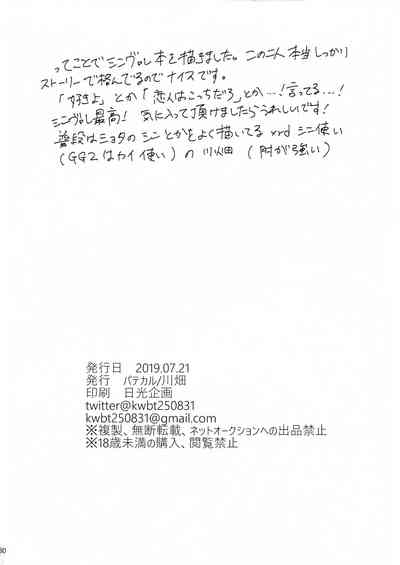 ってことでシンヴェレ本を描きました。この二人本当しっかり
ストーリーで絡んでるのでナイスです。
「好きよ」とか「恋人はこっちだろ」とか…!言ってる…!
シンヴェレ最高! 気に入って頂けましたらうれしいです!
普段はショタのシンとかをよく描いてる xrd シン使い
(GG2はカイ使い)の川畑(肘が強い)
発行日 2019.07.21
発行 パテカル/川畑
印刷 日光企画
twitter@kwbt250831
kwbt250831@gmail.com
※複製、無断転載、ネットオークションへの出品禁止
※18歳未満の購入、閲覧禁止
30